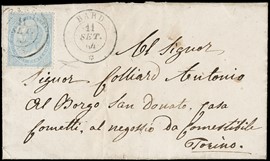 BARD
11
SET.
Al Signor
Signor Folliard Antonio
Al Borgo San Donato, casa
al negozio da Comestibile
Torino.